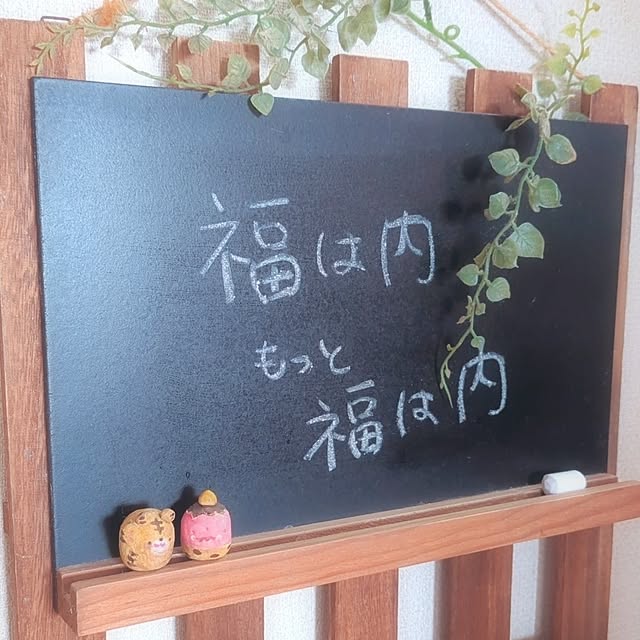 福は内
もっと
福は内